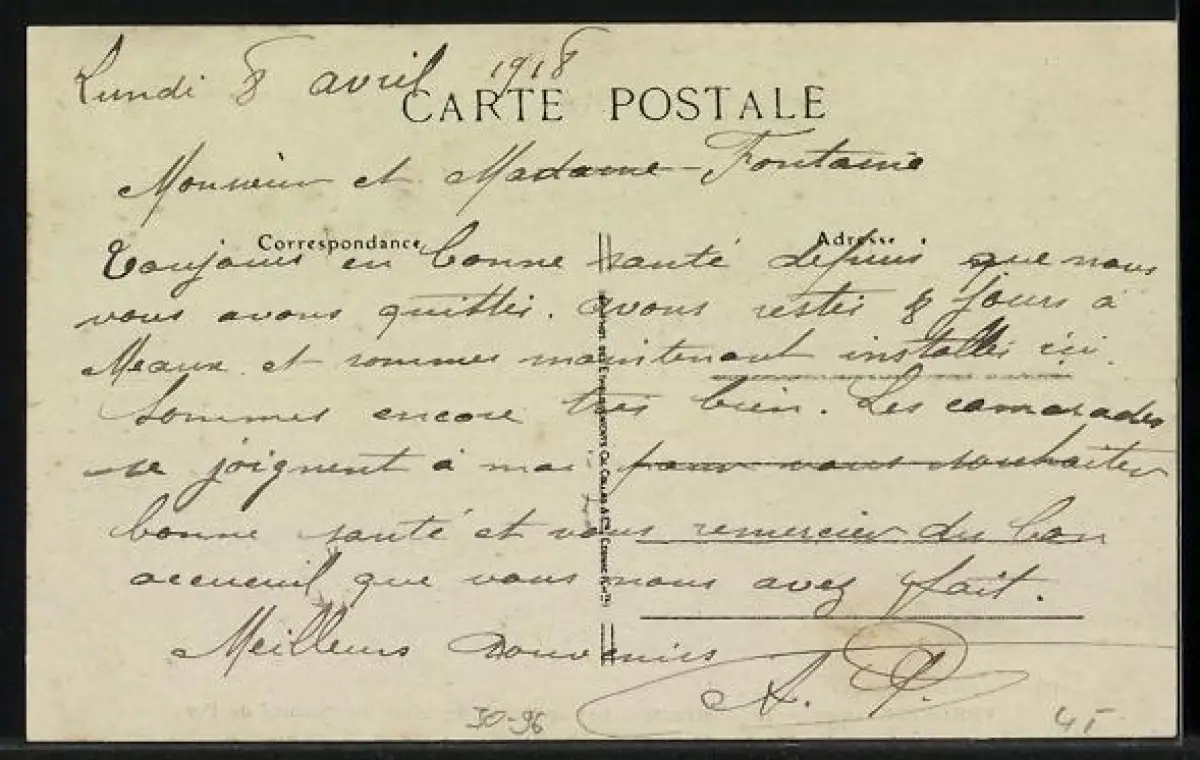 Lundi 8 avril 1918
CARTE POSTALE
Monsieur et Madame Fontaine
Correspondance
Adresse
Toujours en bonne santé depuis que nous
vous avons quittés. avons restés 8 jours à
Meaux et sommes maintenant installés ici.
Sommes encore très bien. Les camarades
se joignent à moi pour vous souhaiter
bonne santé et vous remercier du bon
accueuil que vous nous avez fait.
Meilleurs Souvenirs
A. P.
30-96
45